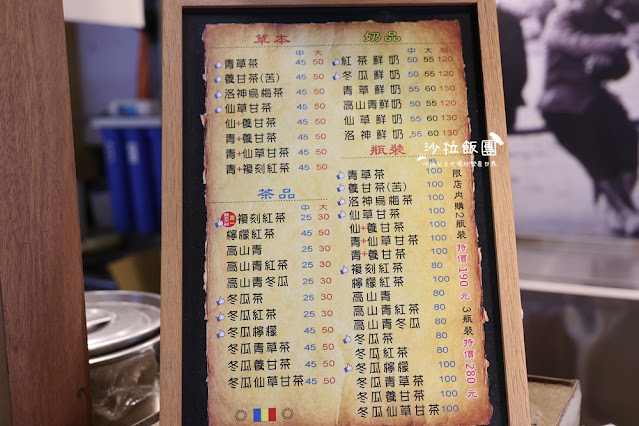 草本
中 大
青草茶 45 50
養甘茶(苦) 45 50
洛神烏梅茶 45 50
仙草甘茶 45 50
仙+養甘茶 45 50
青+養甘茶 45 50
青+仙草甘茶 45 50
青+複刻紅茶 45 50
茶品
中 大
複刻紅茶 25 30
檸檬紅茶 45 50
高山青 25 30
高山青紅茶 25 30
高山青冬瓜 25 30
冬瓜茶 25 30
冬瓜紅茶 25 30
冬瓜檸檬 45 50
冬瓜青草茶 45 50
冬瓜養甘茶 45 50
冬瓜仙草甘茶 45 50
奶品
中 大 瓶
紅茶鮮奶 50 55 120
冬瓜鮮奶 50 55 120
青草鮮奶 55 60 130
高山青鮮奶 50 55 120
仙草鮮奶 55 60 130
洛神鮮奶 55 60 130
瓶裝
青草茶 100
養甘茶(苦) 100
洛神烏梅茶 100
仙草甘茶 100
仙+養甘茶 100
青+養甘茶 100
青+仙草甘茶 100
複刻紅茶 80
檸檬紅茶 100
高山青 80
高山青紅茶 80
高山青冬瓜 80
冬瓜茶 80
冬瓜紅茶 80
冬瓜檸檬 100
冬瓜青草茶 100
冬瓜養甘茶 100
冬瓜仙草甘茶 100
限店內購2瓶裝特價190元
3瓶裝特價280元
沙拉飯團